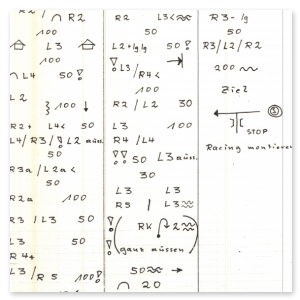 R2 / ∩ R2
100
L3
100
∩ L4 50
L2
100 ↓
R2+ L4<
L4/R3/ L2 aüss.
50
R3a / L2a <
50
R2a 100
R3 / L3 50
L3 50
R4+
L3 / R5 100
R2 L3<
50
L2+lg lg 50
L3/R4<
100
R2 / L2 30
L3 100
R4 / L4
50 L3 aüss.
30
L3 L3
R5 | L3
RK 2
(ganz aüssen)
50 →
∩ 20
R3 - lg
50
R3/L2/R2
200
Ziel
STOP
Racing montieren